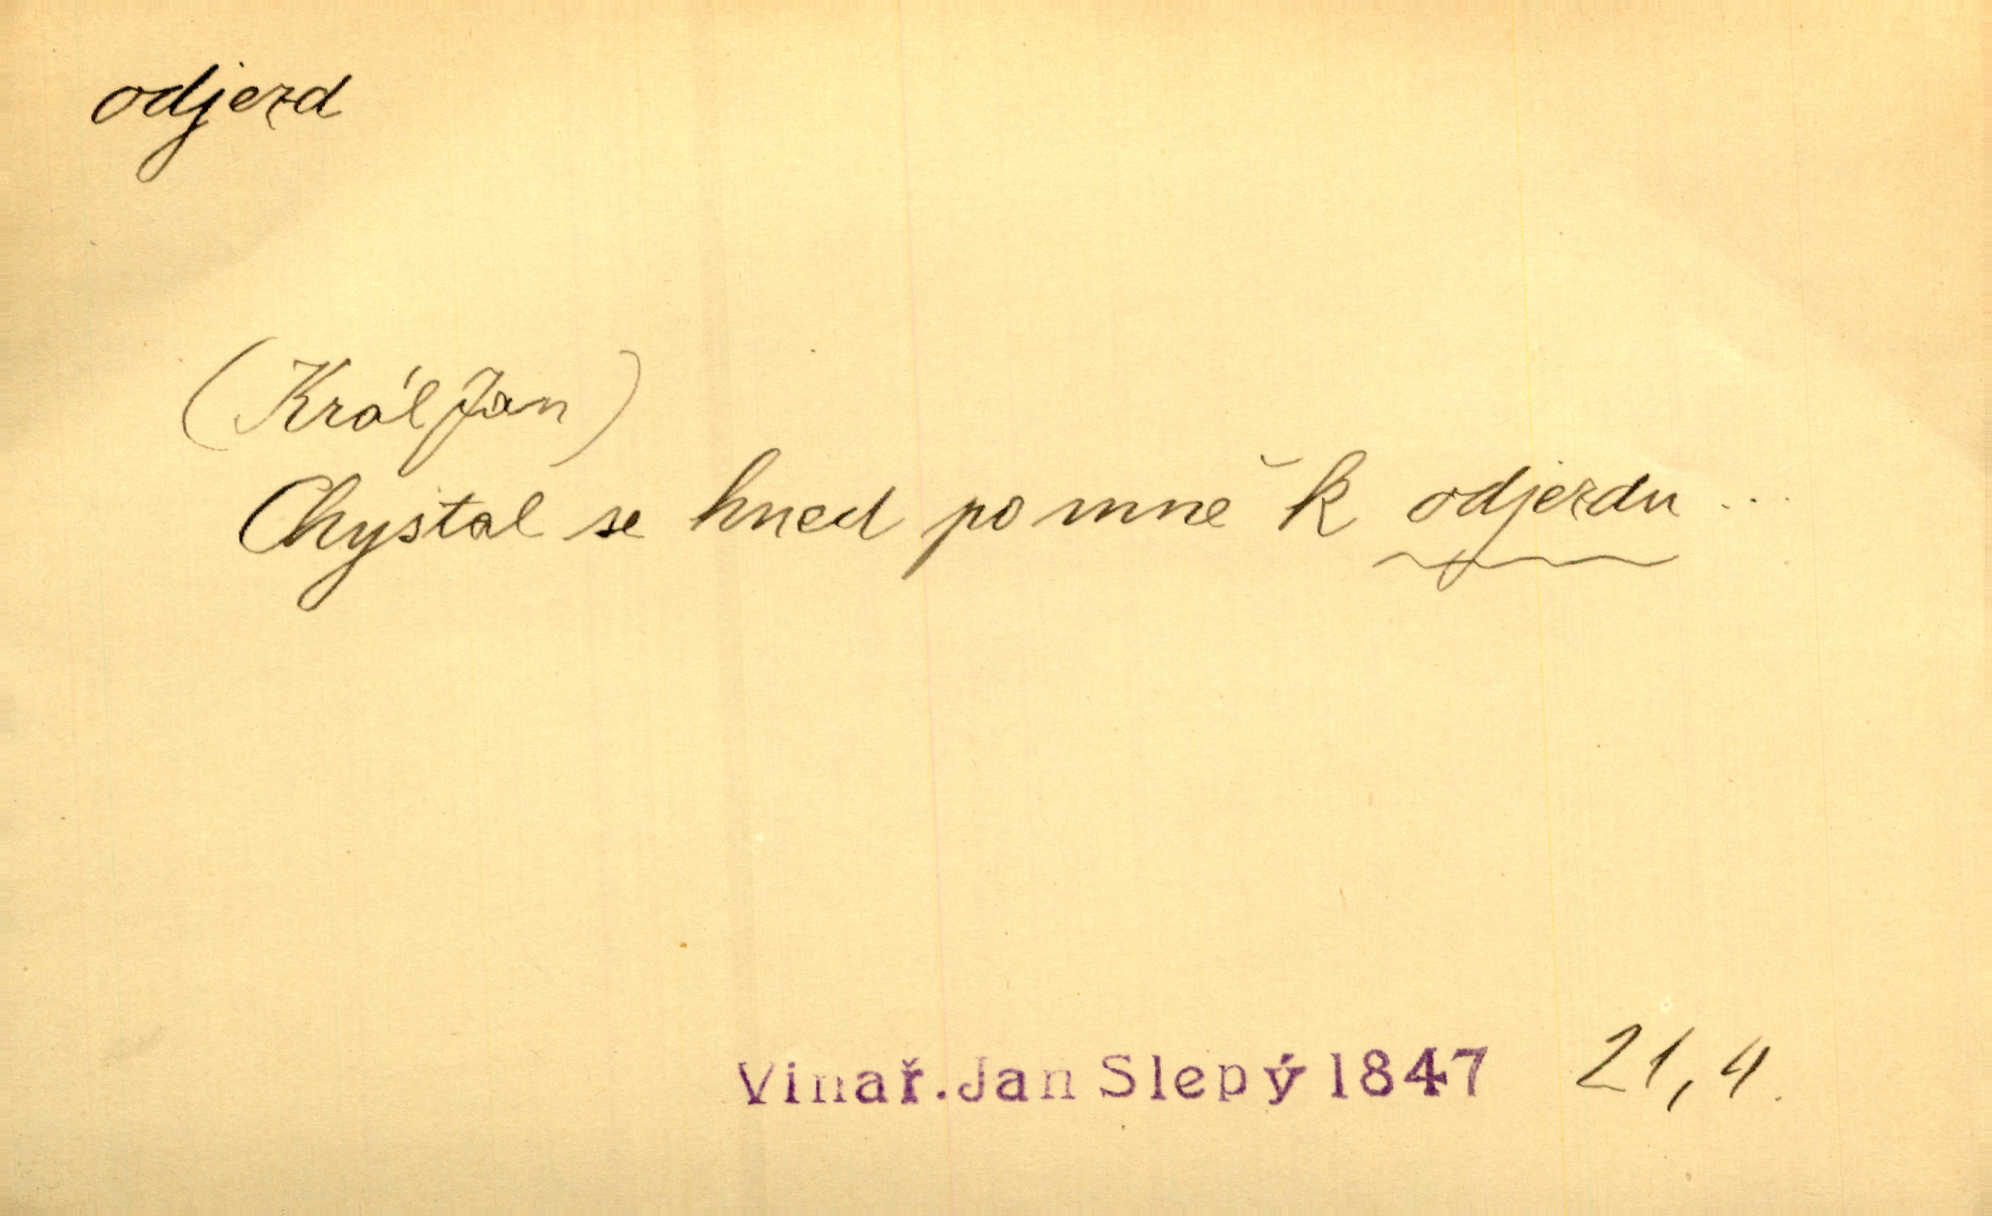 odjezd
(Král Jan)
Chystal se hned po mně k odjezdu ...
Vinař. Jan Slepý 1847 21,4.